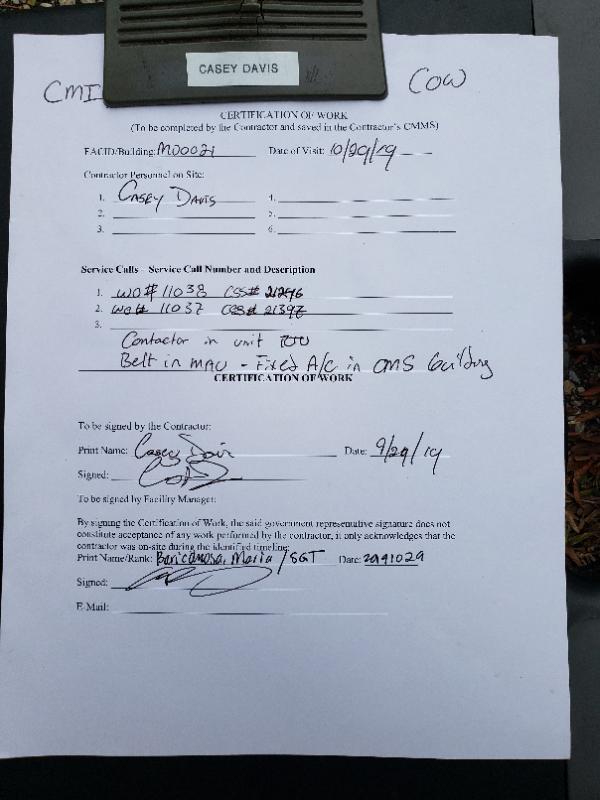 CASEY DAVIS
CMI COW
CERTIFICATION OF WORK
(To be completed by the Contractor and saved in the Contractor's CMMS)
FACID/Building: M00021 Date of Visit: 10/29/19
Contractor Personnel on Site:
1. CASEY DAVIS 4.
2. 5.
3. 6.
Service Calls – Service Call Number and Description
1. WO# 11038 CSS#
2. WO# 11037 CSS#
3.
Contactor in unit
Belt in MAU - Fixed A/C in OMS building
CERTIFICATION OF WORK
To be signed by the Contractor:
Print Name: Casey Davis Date: 9/29/19
Signed:
To be signed by Facility Manager:
By signing the Certification of Work, the said government representative signature does not
constitute acceptance of any work performed by the contractor, it only acknowledges that the
contractor was on-site during the identified timeline:
Print Name/Rank: Maria / SGT Date:
Signed:
E-Mail: